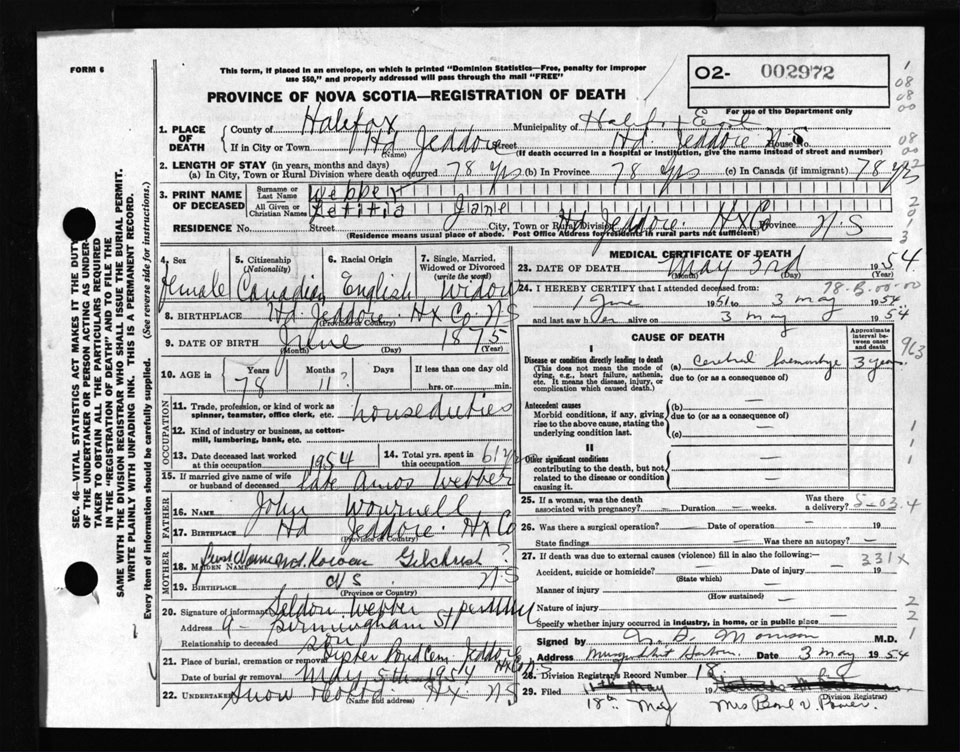 FORM 6
This form, if placed in an envelope, on which is printed "Dominion Statistics—Free, penalty for improper
use $50," and properly addressed will pass through the mail "FREE"
PROVINCE OF NOVA SCOTIA—REGISTRATION OF DEATH
02- 002972
For use of the Department only
1. PLACE OF DEATH
County of Halifax Municipality of Halifax East
If in City or Town Hd Jeddore Street Hd. Jeddore N.S House No.
(Name) (If death occurred in a hospital or institution, give the name instead of street and number)
2. LENGTH OF STAY (in years, months and days)
(a) In City, Town or Rural Division where death occurred 78 yrs (b) In Province 78 yrs (c) In Canada (if immigrant) 78 yrs
3. PRINT NAME OF DECEASED
Surname or Last Name Webber
All Given or Christian Names Letitia Jane
RESIDENCE No. Street City, Town or Rural Division Hd Jeddore Hx Co Province N.S
(Residence means usual place of abode. Post Office Address for residents in rural parts not sufficient)
4. Sex female
5. Citizenship (Nationality) Canadian
6. Racial Origin English
7. Single, Married, Widowed or Divorced (write the word) Widow
8. BIRTHPLACE Hd. Jeddore Hx Co N.S
(Province or Country)
9. DATE OF BIRTH June 1875
(Month) (Day) (Year)
10. AGE in Years 78 Months 11 ? If less than one day old hrs. or min.
OCCUPATION
11. Trade, profession, or kind of work as spinner, teamster, office clerk, etc. house duties
12. Kind of industry or business, as cotton-mill, lumbering, bank, etc.
13. Date deceased last worked at this occupation 1954
14. Total yrs. spent in this occupation 61 yrs
15. If married give name of wife or husband of deceased late Amos Webber
FATHER
16. NAME John Wournell
17. BIRTHPLACE Hd Jeddore Hx Co
(Province or Country)
MOTHER
18. MAIDEN NAME Gilchrist ?
19. BIRTHPLACE N S N.S
(Province or Country)
20. Signature of informant Seldon Webber
Address 9 - Birmingham St
Relationship to deceased son
21. Place of burial, cremation or removal Cem. Jeddore Hx Co N.S
Date of burial or removal May 5th 1954
22. Undertaker Snow Hx. N.S
(Name and address)
MEDICAL CERTIFICATE OF DEATH
23. DATE OF DEATH May 3rd 1954
(Month) (Day) (Year)
24. I HEREBY CERTIFY that I attended deceased from:
1 June 1951 to 3 May 1954
and last saw her alive on 3 may 1954
CAUSE OF DEATH
Approximate interval between onset and death
I
Disease or condition directly leading to death
(This does not mean the mode of dying, e.g., heart failure, asthenia, etc. It means the disease, injury, or complication which caused death.)
(a) Cerebral haemorrhage 3 years
due to (or as a consequence of)
Antecedent causes
Morbid conditions, if any, giving rise to the above cause, stating the underlying condition last.
(b) —
due to (or as a consequence of)
(c) —
II
Other significant conditions
contributing to the death, but not related to the disease or condition causing it.
25. If a woman, was the death associated with pregnancy? — Duration — weeks. Was there a delivery?
26. Was there a surgical operation? — Date of operation — 19
State findings — Was there an autopsy? —
27. If death was due to external causes (violence) fill in also the following:—
Accident, suicide or homicide? Date of injury — 19
(State which)
Manner of injury —
(How sustained)
Nature of injury —
Specify whether injury occurred in industry, in home, or in public place —
331x
Signed by Morrison M.D.
Address Musquodoboit Harbour Date 3 May 1954
28. Division Registrar's Record Number 18
29. Filed 11th May 19
(Division Registrar)
18th May
SEC. 46—VITAL STATISTICS ACT MAKES IT THE DUTY
OF THE UNDERTAKER OR PERSON ACTING AS UNDER-
TAKER TO OBTAIN ALL THE PARTICULARS REQUIRED
IN THE "REGISTRATION OF DEATH" AND TO FILE THE
SAME WITH THE DIVISION REGISTRAR WHO SHALL ISSUE THE BURIAL PERMIT.
WRITE PLAINLY WITH UNFADING INK. THIS IS A PERMANENT RECORD.
Every item of information should be carefully supplied. (See reverse side for instructions.)